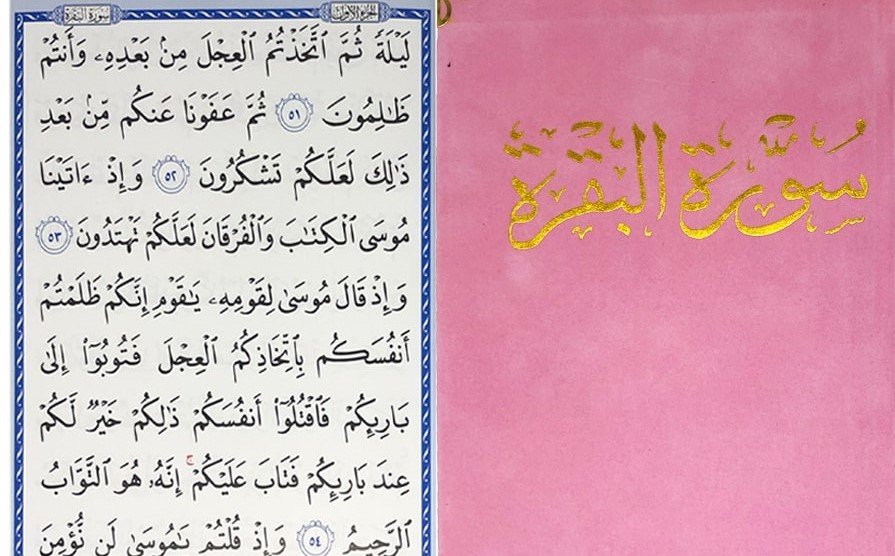 سُورَةُ البَقَرَةِ
الجُزءُ الأَوَّلُ
لَيْلَةً ثُمَّ ٱتَّخَذْتُمُ ٱلْعِجْلَ مِنۢ بَعْدِهِۦ وَأَنتُمْ
ظَٰلِمُونَ ٥١ ثُمَّ عَفَوْنَا عَنكُم مِّنۢ بَعْدِ
ذَٰلِكَ لَعَلَّكُمْ تَشْكُرُونَ ٥٢ وَإِذْ ءَاتَيْنَا
مُوسَى ٱلْكِتَٰبَ وَٱلْفُرْقَانَ لَعَلَّكُمْ تَهْتَدُونَ ٥٣
وَإِذْ قَالَ مُوسَىٰ لِقَوْمِهِۦ يَٰقَوْمِ إِنَّكُمْ ظَلَمْتُمْ
أَنفُسَكُم بِٱتِّخَاذِكُمُ ٱلْعِجْلَ فَتُوبُوٓا۟ إِلَىٰ
بَارِئِكُمْ فَٱقْتُلُوٓا۟ أَنفُسَكُمْ ذَٰلِكُمْ خَيْرٌ لَّكُمْ
عِندَ بَارِئِكُمْ فَتَابَ عَلَيْكُمْ ۚ إِنَّهُۥ هُوَ ٱلتَّوَّابُ
ٱلرَّحِيمُ ٥٤ وَإِذْ قُلْتُمْ يَٰمُوسَىٰ لَن نُّؤْمِنَ
سُورَة البَقَرَة